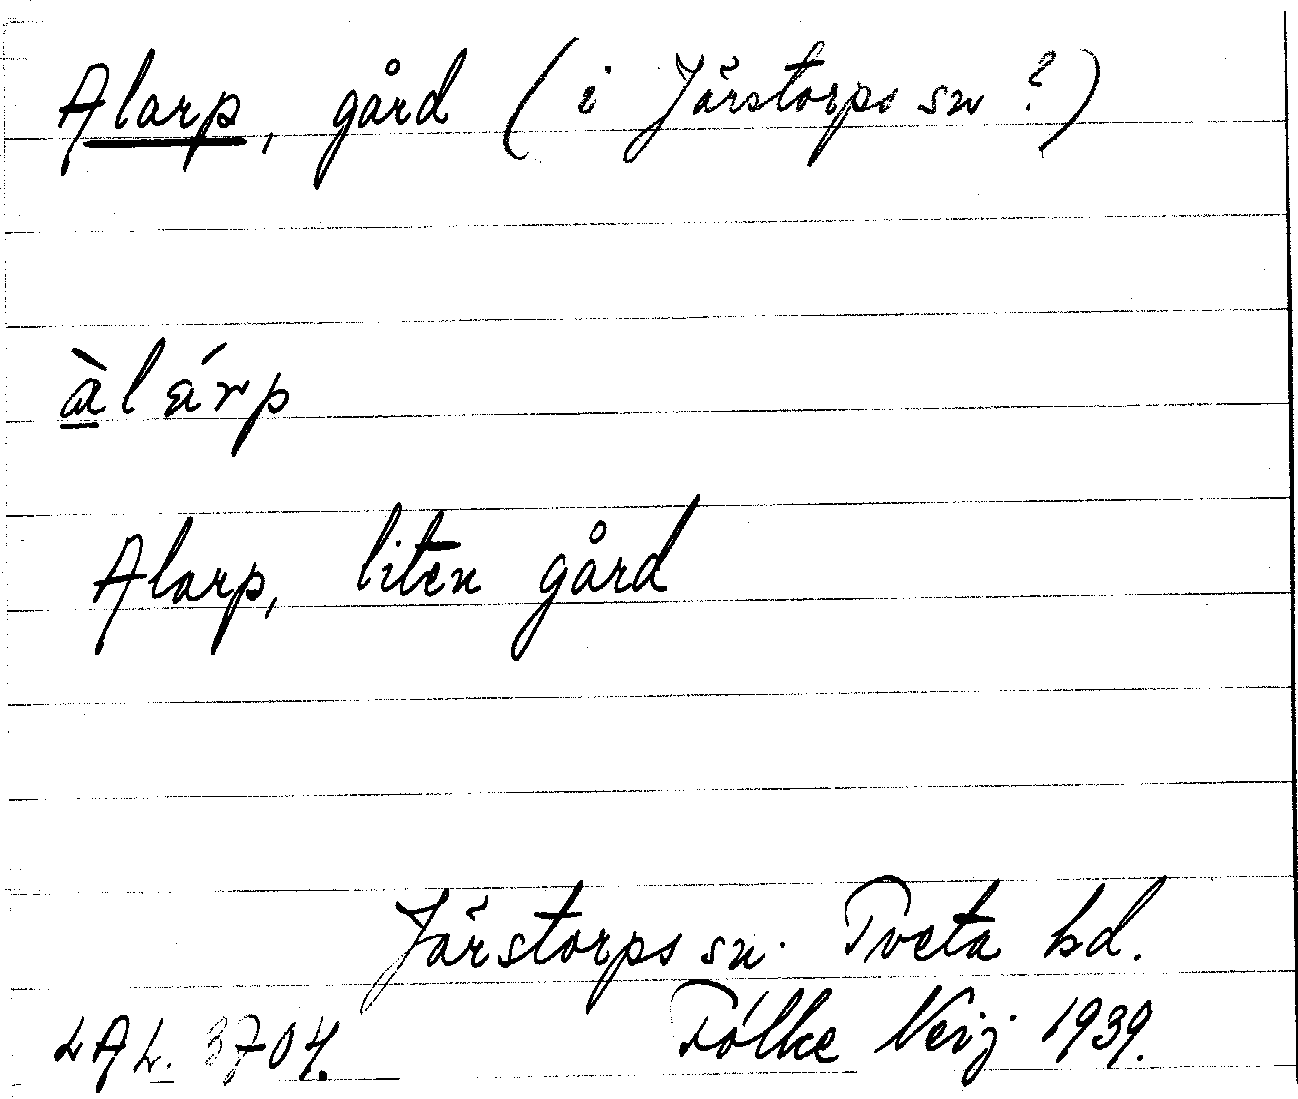 Alarp, gård (i Järstorps sn ?)
àlárp
Alarp, liten gård
Järstorps sn. Tveta hd.
LAL. 3704. Folke Neij 1939.